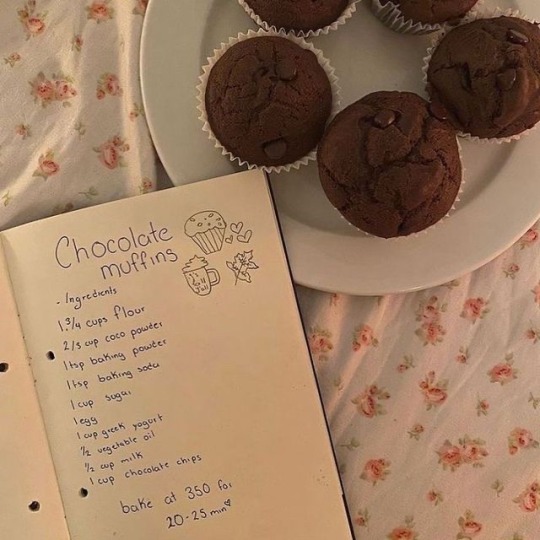 Chocolate
muffins
- Ingredients
1 3/4 cups flour
2/3 cup coco powder
1 tsp baking powder
1 tsp baking soda
1 cup sugar
1 egg
1 cup greek yogurt
1/2 vegetable oil
1/2 cup milk
1 cup chocolate chips
bake at 350 for
20-25 min